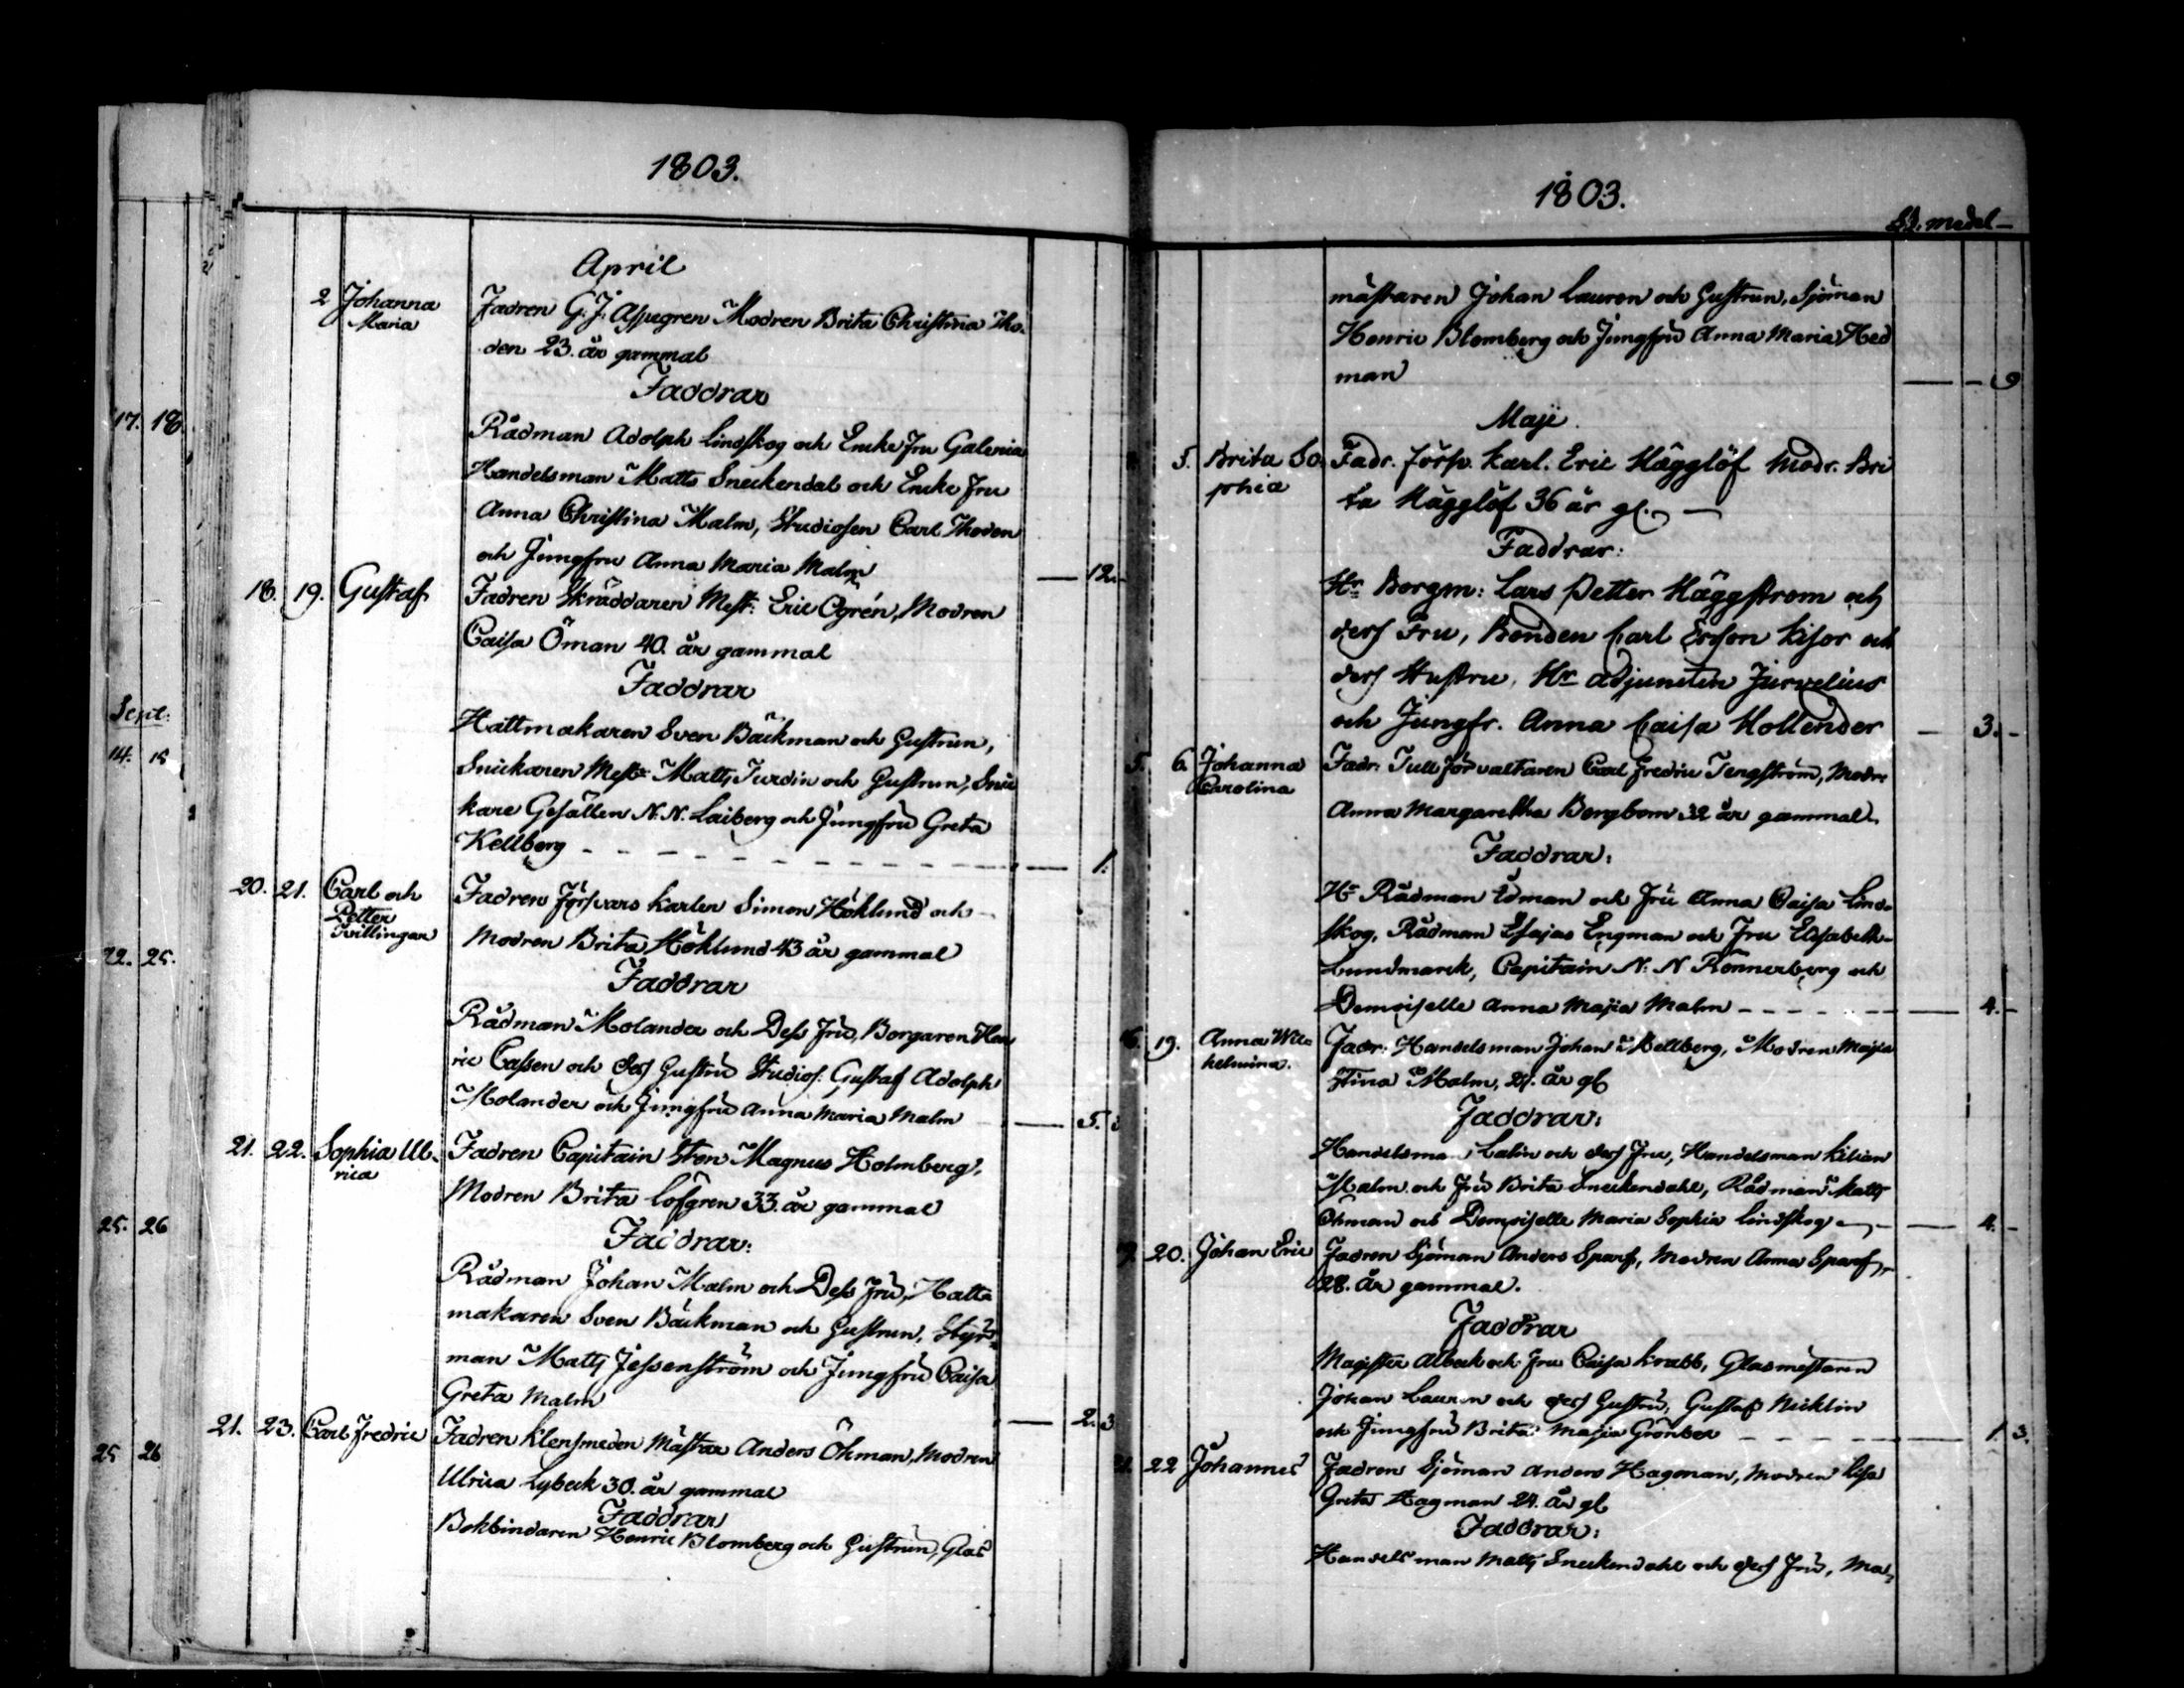 1803.
April
2 Johanna Maria
Fadren G. J. Aspegren Modren Brita Christina Tho-
den 23. år gammal
Faddrar
Rådman Adolph Lindskog och Encke Fru Galenia
Handelsman Matts Sneckendal och Encke Fru
Anna Christina Malm, Studiosen Carl Thoden
och Jungfru Anna Maria Malm — 12.
18. 19. Gustaf
Fadren Skräddaren Mest: Eric Ögrén, Modren
Caisa Öman 40. år gammal
Faddrar
Hattmakaren Sven Bäckman och Hustrun,
Snickaren Mestr Matts Turdin och Hustrun, Snic
kare Gesällen N. N. Laiberg och Jungfru Greta
Kellberg — 1.
20. 21. Carl och
Petter
Tvillingar
Fadren Försvars Karlen Simon Höklund och
Modren Brita Höklund 43 år gammal
Faddrar
Rådman Molander och Dess Fru, Borgaren Hen
ric Cassen och dess Hustru Studios: Gustaf Adolph
Molander och Jungfru Anna Maria Malm — 5.
21. 22. Sophia Ul-
rica
Fadren Capitain Sten Magnus Holmberg,
Modren Brita Löfgren 33. år gammal
Faddrar:
Rådman Johan Malm och Dess Fru, Hatt-
makaren Sven Bäckman och Hustrun, Styr-
man Matts Jessenström och Jungfru Caisa
Greta Malm — 2. 3
21. 23. Carl Fredric
Fadren Klensmeden Mästar Anders Öhman, Modren
Ulrica Lybeck 30. år gammal
Faddrar
Bokbindaren Henric Blomberg och Hustrun, Glas
17. 18.
Sept:
14. 18
22. 25.
25. 26
25 26
1803.
medel —
mästaren Johan Lauren och Hustrun, Sjöman
Henric Blomberg och Jungfru Anna Maria Hed
man
Maji.
5. Brita So
phia
Fadr. Försv. Karl. Eric Hägglöf Modr. Bri
ta Hägglöf 36 år gl.
Faddrar:
Hr Borgm: Lars Petter Häggström och
dess Fru, Bonden Carl Ersson Kisor och
dess Hustru, Hr Adjuncten Jurvelius
och Jungfr. Anna Caisa Hollender — 3. -
5. 6. Johanna
Carolina
Fadr: Tullförvaltaren Carl Fredric Tengström, Modr:
Anna Margaretha Bergbom 32 år gammal
Faddrar:
Hr Rådman Edman och Fru Anna Caisa Lind-
skog, Rådman Esajas Engman och Fru Elisabeth
Lundmarck, Capitain N. N Rönnerberg och
Demoiselle Anna Majia Malm — 4. -
16. 19. Anna Wil-
helmina.
Fadr: Handelsman Johan Kellberg, Modren Majia
Stina Malm, 21. år gl
Faddrar:
Handelsman Lalin och dess Fru, Handelsman Kilian
Malm och Fru Brita Sneckendahl, Rådman Matts
Öhman och Demoiselle Maria Sophia Lindskog — 4. -
19. 20. Johan Eric
Fadren Sjöman Anders Sparf, Modren Anna Sparf
28. år gammal.
Faddrar
Magister Albeck och Fru Caisa Krabb, Glasmestaren
Johan Lauren och dess Hustru, Gustaf Nicklin
och Jungfru Brita Majia Grönber — 1 3.
21. 22 Johannes
Fadren Sjöman Anders Hagman, Modren Lisa
Greta Hagman 24. år gl
Faddrar:
Handelsman Matts Sneckendahl och dess Fru, Ma-